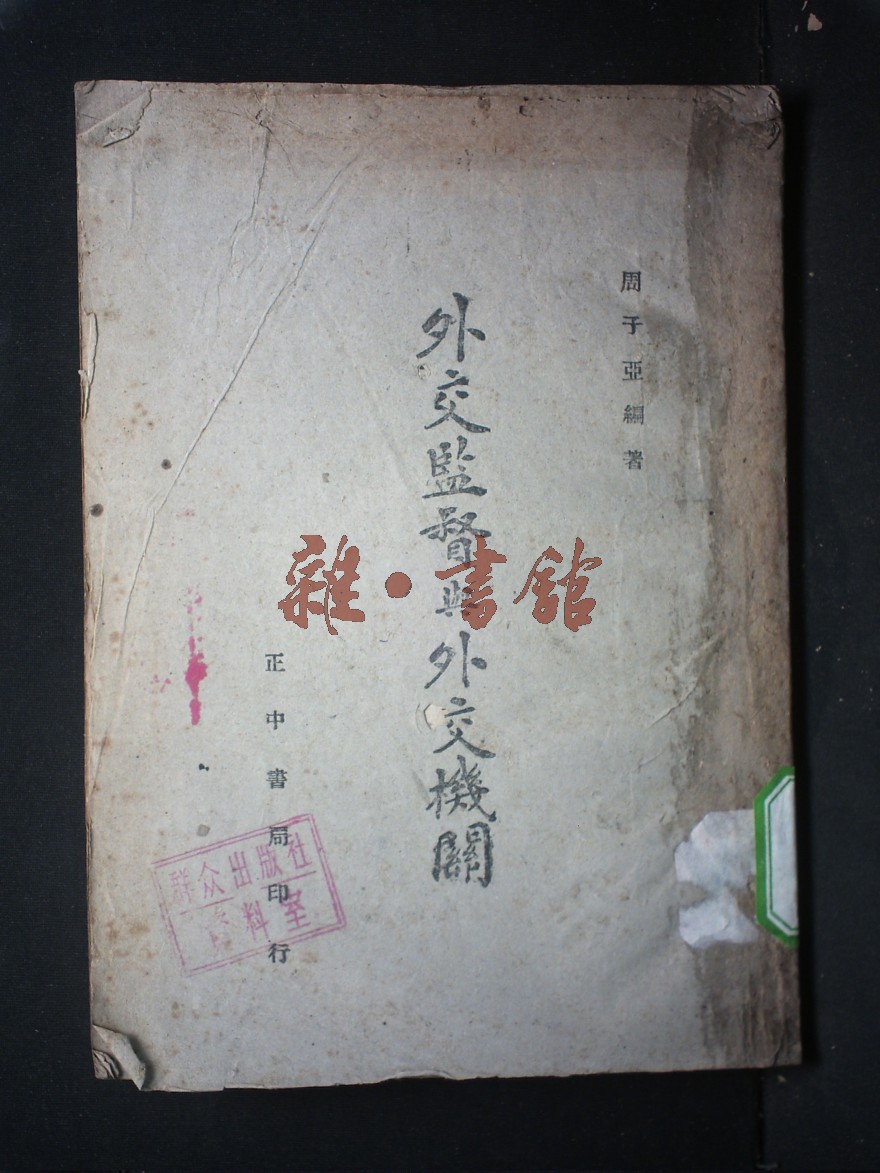 周子亞編著
外交監督與外交機關
正中書局印行
群众出版社
资料室
雜·書館